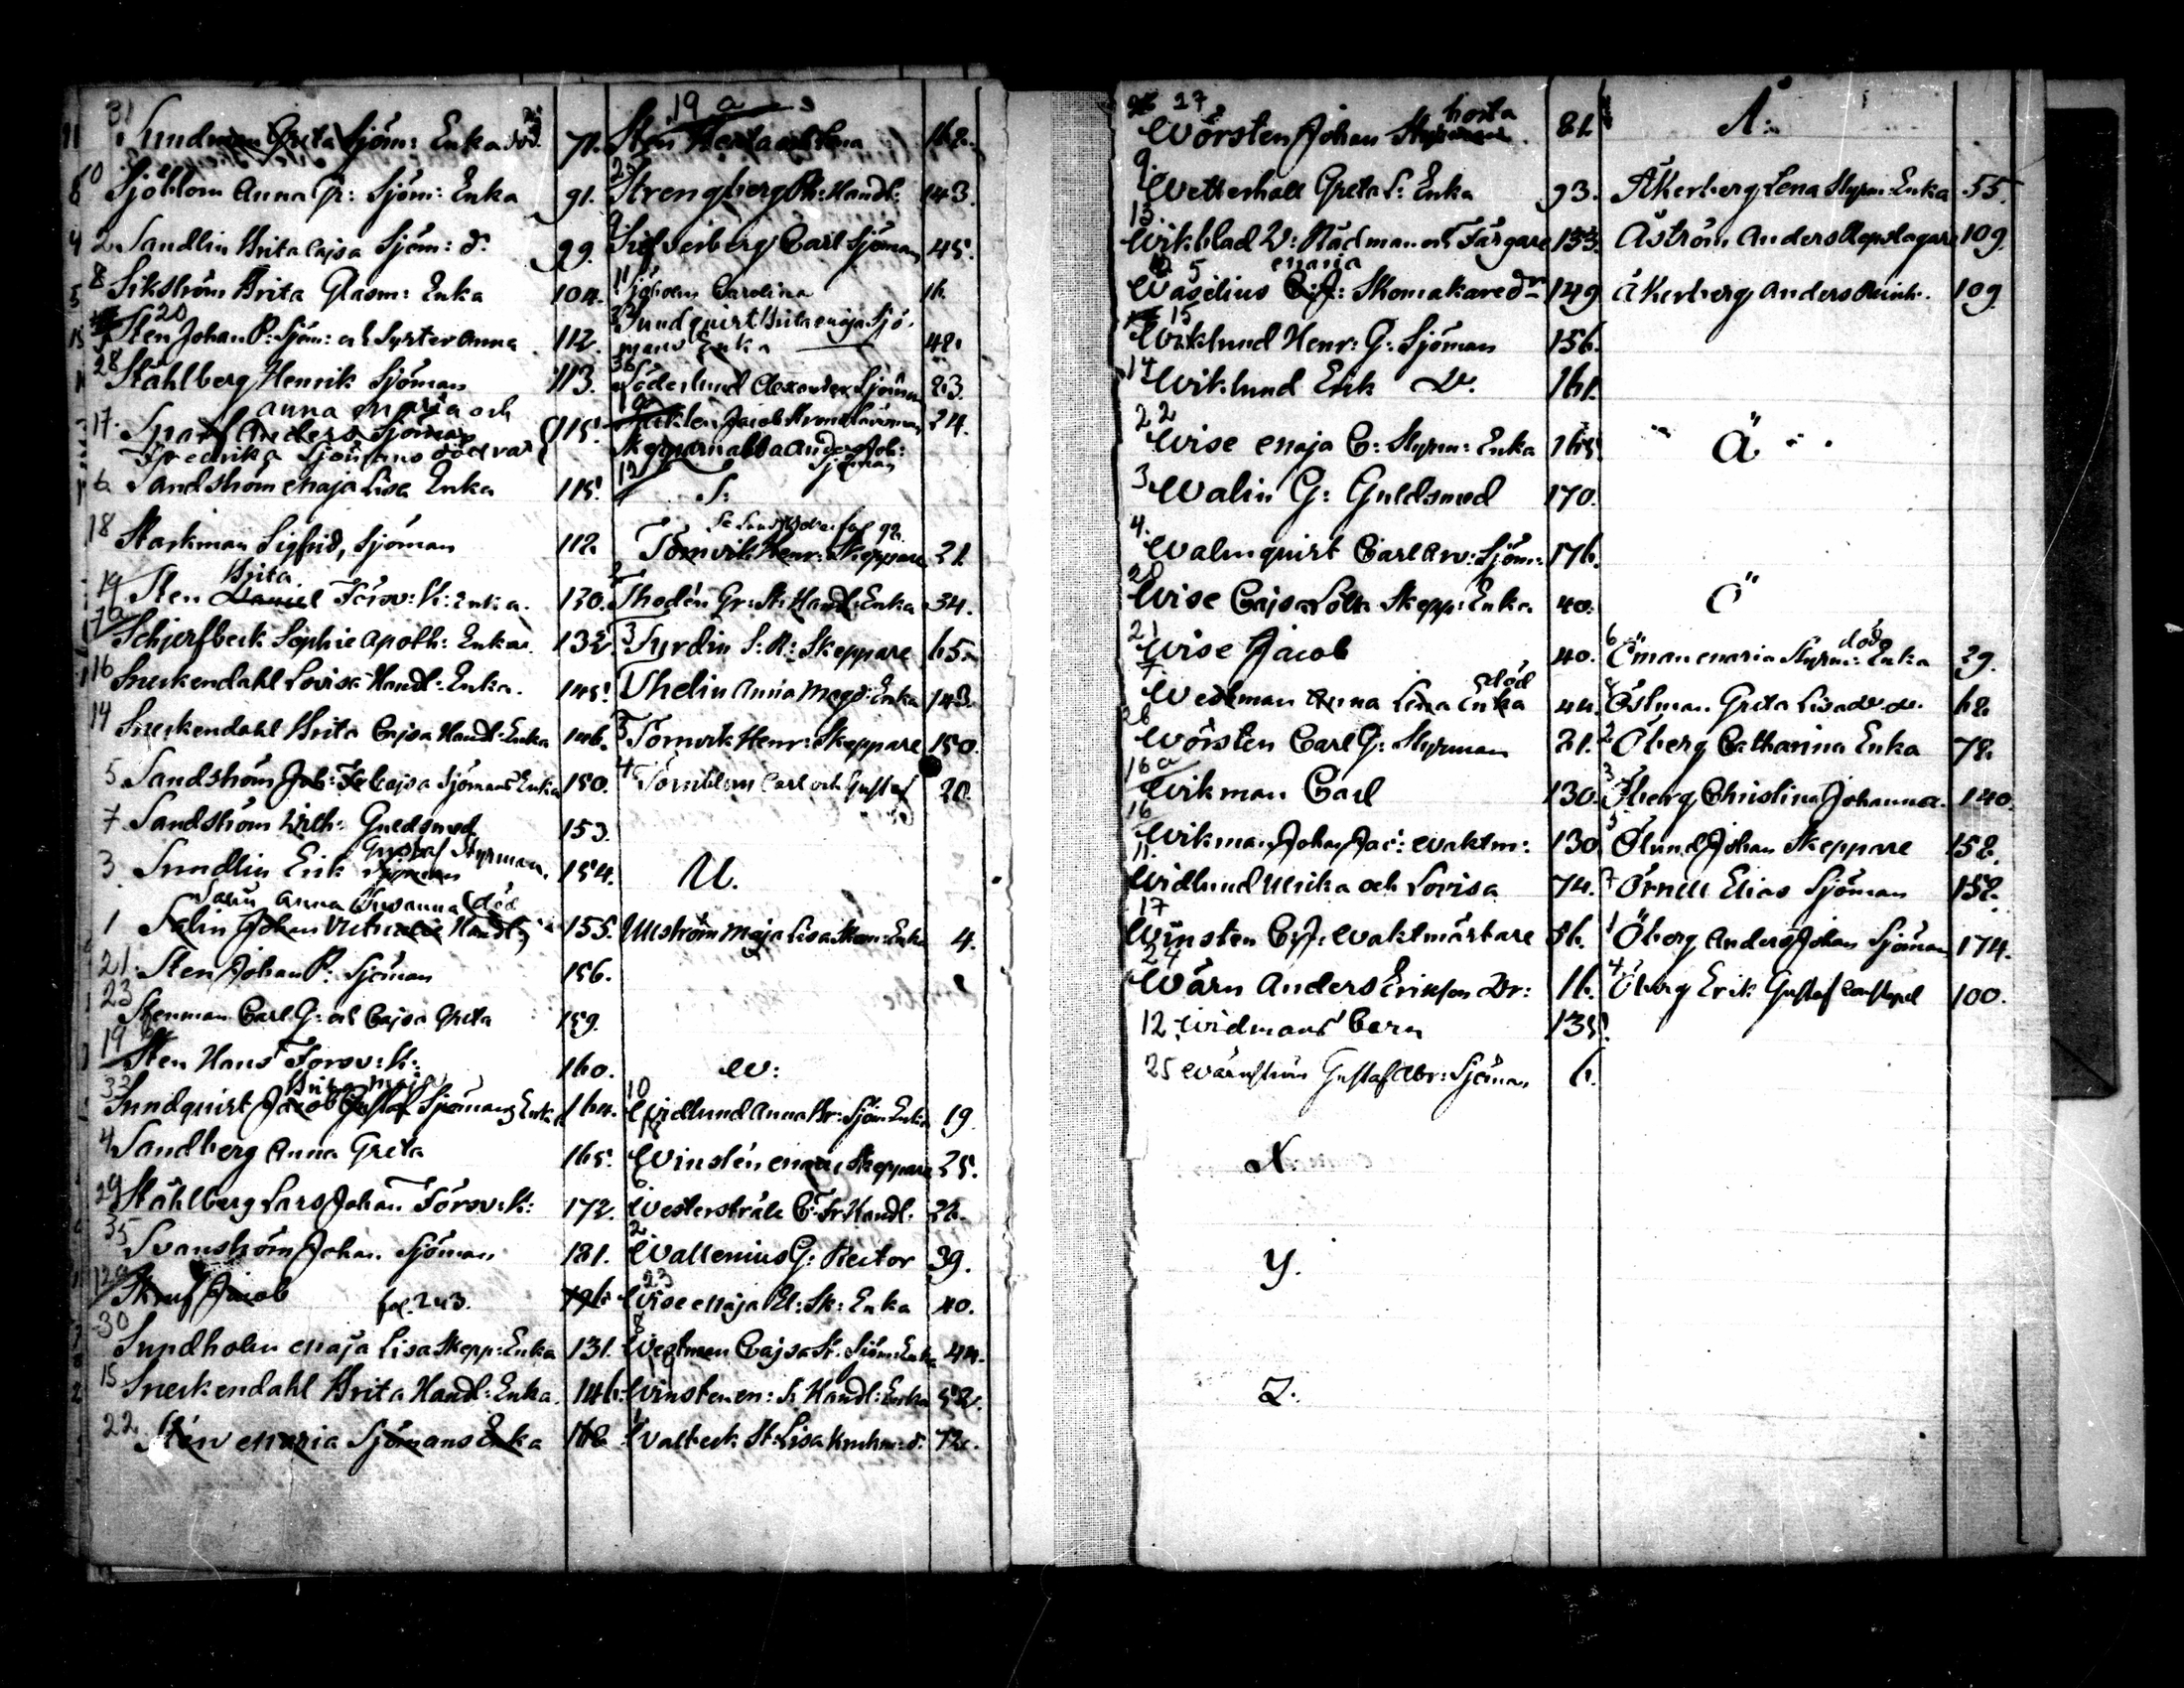 31
Sundman Greta Sjöm: Enka död. 71.
10
Sjöblom Anna Gr: Sjöm: Enka 91.
2 Sandlin Brita Cajsa Sjöm: d: 99.
8 Sikström Brita Glasm: Enka 104.
20
Sten Johan P: Sjöm: och Syster Anna 112.
28
Ståhlberg Henrik Sjöman 113.
Anna Maria och
17. Spaaf Anders Sjöman 115.
Fredrika Sjömans döttrar
6 Sandström Maja Lisa Enka 115.
18 Starkman Sigfrid, Sjöman 112.
Brita
19 Sten Daniel Försv: K: Enka. 130.
7a
Schjerfbeck Sophie Apoth: Enka. 132
16 Sneckendahl Lovisa Handl: Enka. 145.
14 Sneckendahl Brita Cajsa Handl: Enka 146.
5 Sandström Cajsa Sjömans Enka 150.
7 Sandström Wilh: Guldsmed 153.
Gustaf Styrman.
3. Sundlin Erik Sjöman 154.
Anna Susanna död
1 Salin Johan Handl: 155.
21. Sten Johan P: Sjöman 156.
23
Stenman Carl G: och Cajsa Greta 159.
19
Sten Hans Försv: K: 160.
Brita Maja
33 Sundquist Jacob Gustaf Sjömans Enka 164.
4 Sandberg Anna Greta 165.
29 Ståhlberg Lars Johan Försv: K: 172.
35
Svanström Johan Sjöman 181.
12a
Skruf Jacob fol. 243. 196.
30
Sundholm Maja Lisa Skepp: Enka 131.
15 Sneckendahl Brita Handl: Enka. 146.
22. Sten Maria Sjömans Enka 118
19 a
Sten Lena 162.
Strengberg Ph: Handl: 143.
9
Silfverberg Carl Sjöman 45.
11
Sjöholm Carolina 16.
Sundquist Brita Maja Sjö-
mans Enka 48.
36
Söderlund Alexander Sjöman 83.
Jacob 24.
Anders Joh:
Sjöman
12
fol 92.
Törnvik Henr: Skeppare 21.
2
Thodén Gr: St: Handl: Enka 34.
3 Tyrdin S: A: Skeppare 65.
Thelin Anna Magd: Enka 143.
5 Törnvik Henr: Skeppare 150.
4 Törnblom Carl och Gustaf 20.
U.
Ullström Maja Lisa Skom: Enka 4.
W:
10
Widlund Anna Br: Sjöm: Enka 19.
18
Winstén Skeppare 25.
6.
Westerstråle C: Fr: Handl. 36.
2
Wallenius G: Rector 39.
23
Wise Maja El: Sk: Enka 40.
8
Westman Cajsa St. Sjöm: Enka 44.
Winsten M: S: Handl: Enka 52.
1
Walbeck St: Lisa d: 72.
27
borta
Wörsten Johan Styrman 81.
9.
Wetterhall Greta L: Enka 93.
13.
Wikblad W: Rådman och Färgare 133.
5 Maria
Waselius C: J: Skomakare dr 149
15
Wiklund Henr: G: Sjöman 156.
14 Wiklund Erik D: 161.
22
Wise Maja C: Styrm: Enka 165
3 Walin G: Guldsmed 170.
4.
Walmquist Carl Arv: Sjöm: 176.
20
Wise Cajsa Lotta Skepp: Enka 40.
21
Wise Jacob 40.
7 död
Westman Anna Lena Enka 44.
26
Wörsten Carl G: Styrman 81.
16a
Wikman Carl 130.
16
Wikman Johan Jac: Waktm: 130
11.
Widlund Ulrika och Lovisa 74.
17
Winsten C: J: Waktmästare 86.
24
Wärn Anders Eriksson Dr: 16.
12 Widmans Barn 135.
25 Wärnström Gustaf Abr: Sjöman 6.
X.
Y.
Z.
Å:
Åkerberg Lena Styrm: Enka 55.
Åström Anders Repslagare 109.
Åkerberg Anders 109
Ä
Ö
död
6 Öman Maria Styrm: Enka 29.
Östman Greta Lisa 68.
2 Öberg Catharina Enka 78.
3 Öberg Christina Johanna. 140.
5 Ölund Johan Skeppare 152.
7 Örnell Elias Sjöman 152.
1 Öberg Anders Johan Sjöman 174.
4 Öberg Erik Gustaf 100.